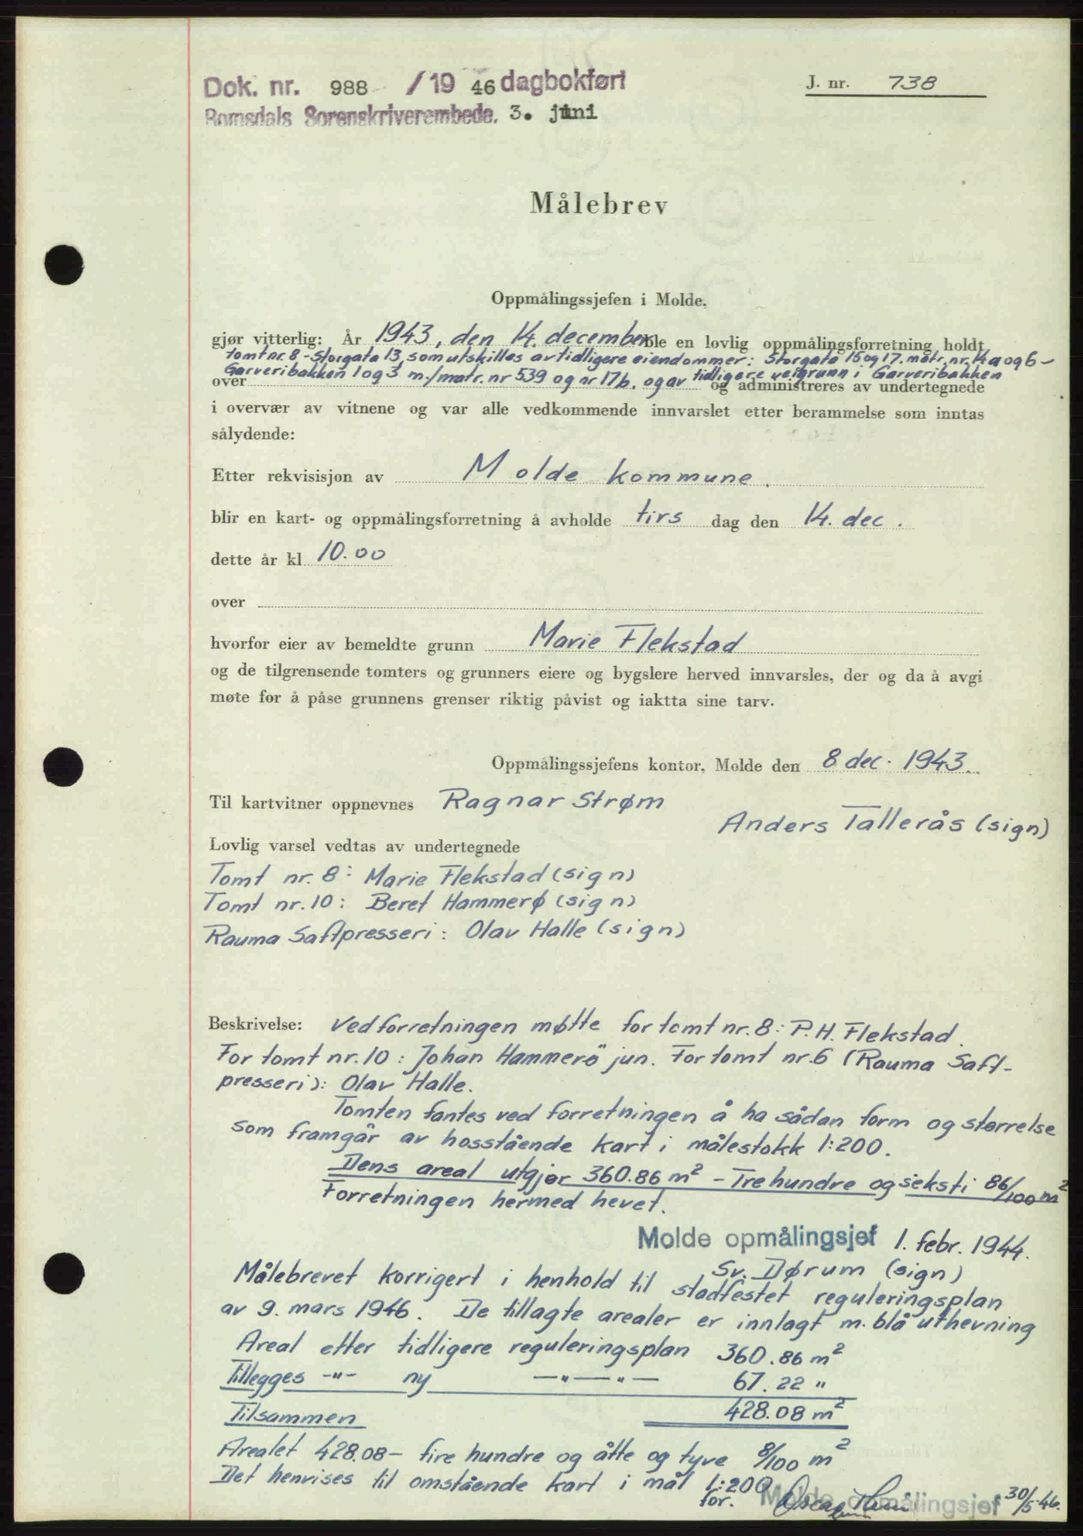 Dok. nr. 988 /19 46 dagbokført
Romsdals Sorenskriverembede. 3. juni
J. nr. 738
Målebrev
Oppmålingssjefen i Molde.
gjør vitterlig: År 1943, den 14. december ble en lovlig oppmålingsforretning holdt,
tomt nr. 8 - Storgata 13, som utskilles av tidligere eiendommer: Storgata 15 og 17. matr. nr. 14a og 6 -
Garveribakken 1 og 3 m./matr. nr 539 og nr 17b. og av tidligere veigrunn i Garveribakken
over og administreres av undertegnede
i overvær av vitnene og var alle vedkommende innvarslet etter berammelse som inntas
sålydende:
Etter rekvisisjon av Molde kommune.
blir en kart- og oppmålingsforretning å avholde tirs dag den 14. dec.
dette år kl 10.00
over
hvorfor eier av bemeldte grunn Marie Flekstad
og de tilgrensende tomters og grunners eiere og bygslere herved innvarsles, der og da å avgi
møte for å påse grunnens grenser riktig påvist og iaktta sine tarv.
Oppmålingssjefens kontor, Molde den 8 dec. 1943.
Til kartvitner oppnevnes Ragnar Strøm
Anders Tallerås (sign)
Lovlig varsel vedtas av undertegnede
Tomt nr. 8: Marie Flekstad (sign)
Tomt nr. 10: Beret Hammerø (sign)
Rauma Saftpresseri: Olav Halle (sign)
Beskrivelse: Ved forretningen møtte for tomt nr. 8: P.H. Flekstad.
For tomt nr. 10: Johan Hammerö jun. For tomt nr. 6 (Rauma Saft-
presseri): Olav Halle.
Tomten fantes ved forretningen å ha sådan form og størrelse
som framgår av hosstående kart i målestokk 1:200.
Dens areal utgjør 360.86 m² - Tre hundre og seksti 86/100 m²
Forretningen hermed hevet.
Molde opmålingsjef 1. febr. 1944.
Sv. Dørum (sign)
Målebrevet korrigert i henhold til stadfestet reguleringsplan
av 9. mars 1946. De tillagte arealer er innlagt m. blå uthevning
Areal etter tidligere reguleringsplan 360.86 m²
Tillegges -"- ny -"-"- 67.22 "
Tilsammen 428.08 m²
Arealet 428.08 - fire hundre og åtte og tyve 8/100 m²
Det henvises til omstående kart i mål 1:200
for. Molde opmålingsjef 30/5 46.